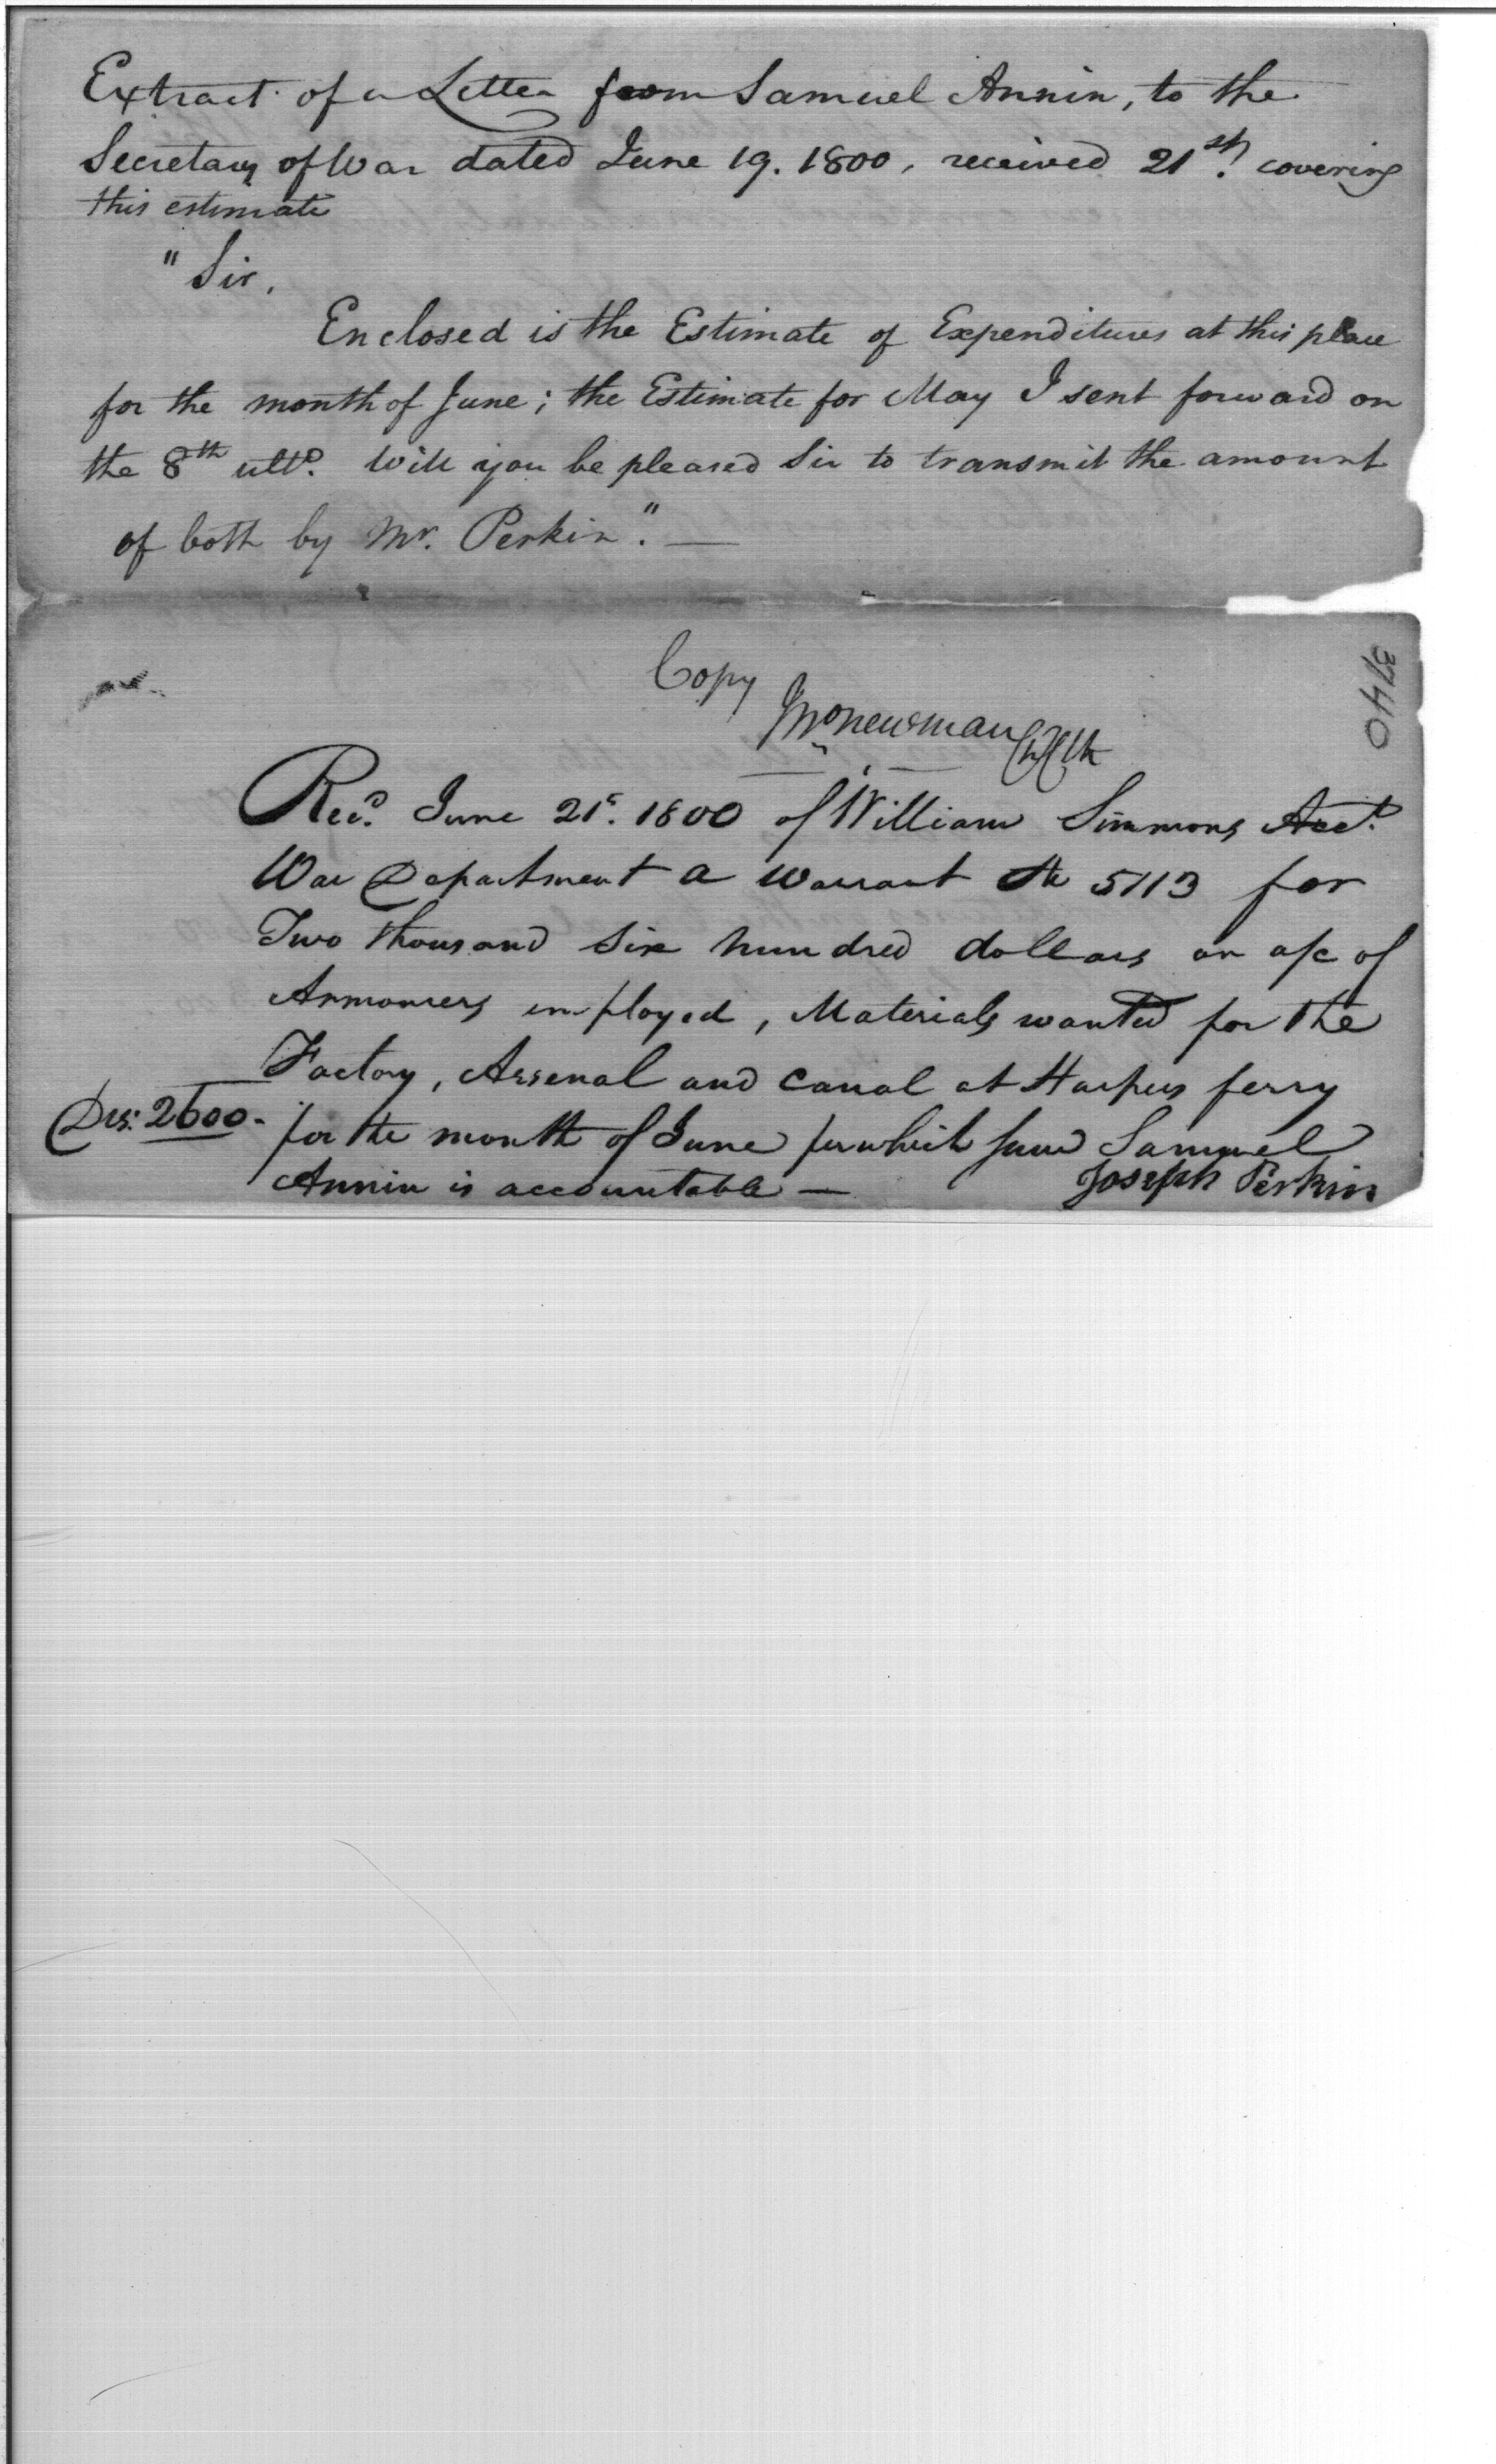 Extract of a Letter from Samuel Annin, to the
Secretary of War dated June 19. 1800, received 21st. covering
this estimate
"Sir,
Enclosed is the Estimate of Expenditures at this place
for the month of June; the Estimate for May I sent forward on
the 8th ulto. Will you be pleased Sir to transmit the amount
of both by Mr. Perkin." —
Copy
3740
Jno Newman
Recd. June 21st. 1800 of William Simmons Acct.
War Department a Warrant No 5113 for
Two thousand six hundred dollars on a/c of
Armourers employed, Materials wanted for the
Factory, Arsenal and Canal at Harpers ferry
Drs: 2600.- for the month of June for which sum Samuel
Annin is accountable —
Joseph Perkin